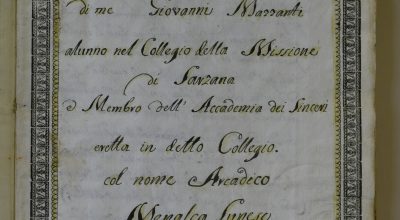 di me Giovanni Mazzanti
alunno nel Collegio della Missione
di Sarzana
e Membro dell' Accademia dei Sinceri
eretta in detto Collegio.
col nome Arcadico
Menalca Lunese